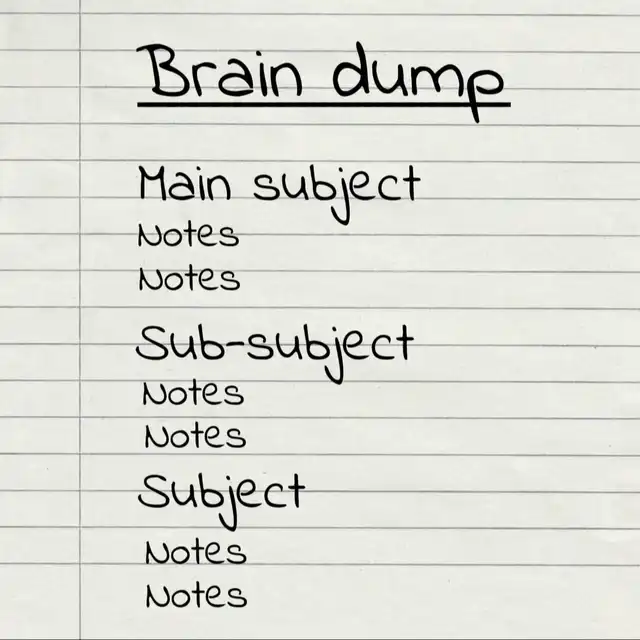 Brain dump
Main subject
Notes
Notes
Sub-subject
Notes
Notes
Subject
Notes
Notes